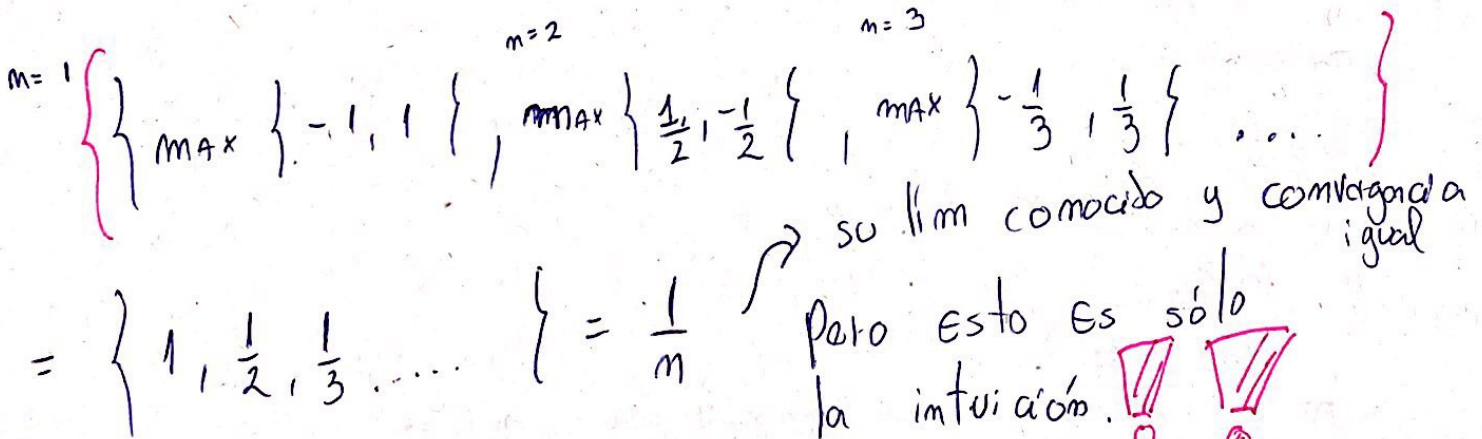 m=1 m=2 m=3
{ } max { -1, 1 { , max } 1/2, -1/2 { , max } -1/3, 1/3 { .... }
su lim comocido y comvergencia
igual
= } 1, 1/2, 1/3 ..... } = 1/m
Pero Esto Es sólo
la intuición. !!